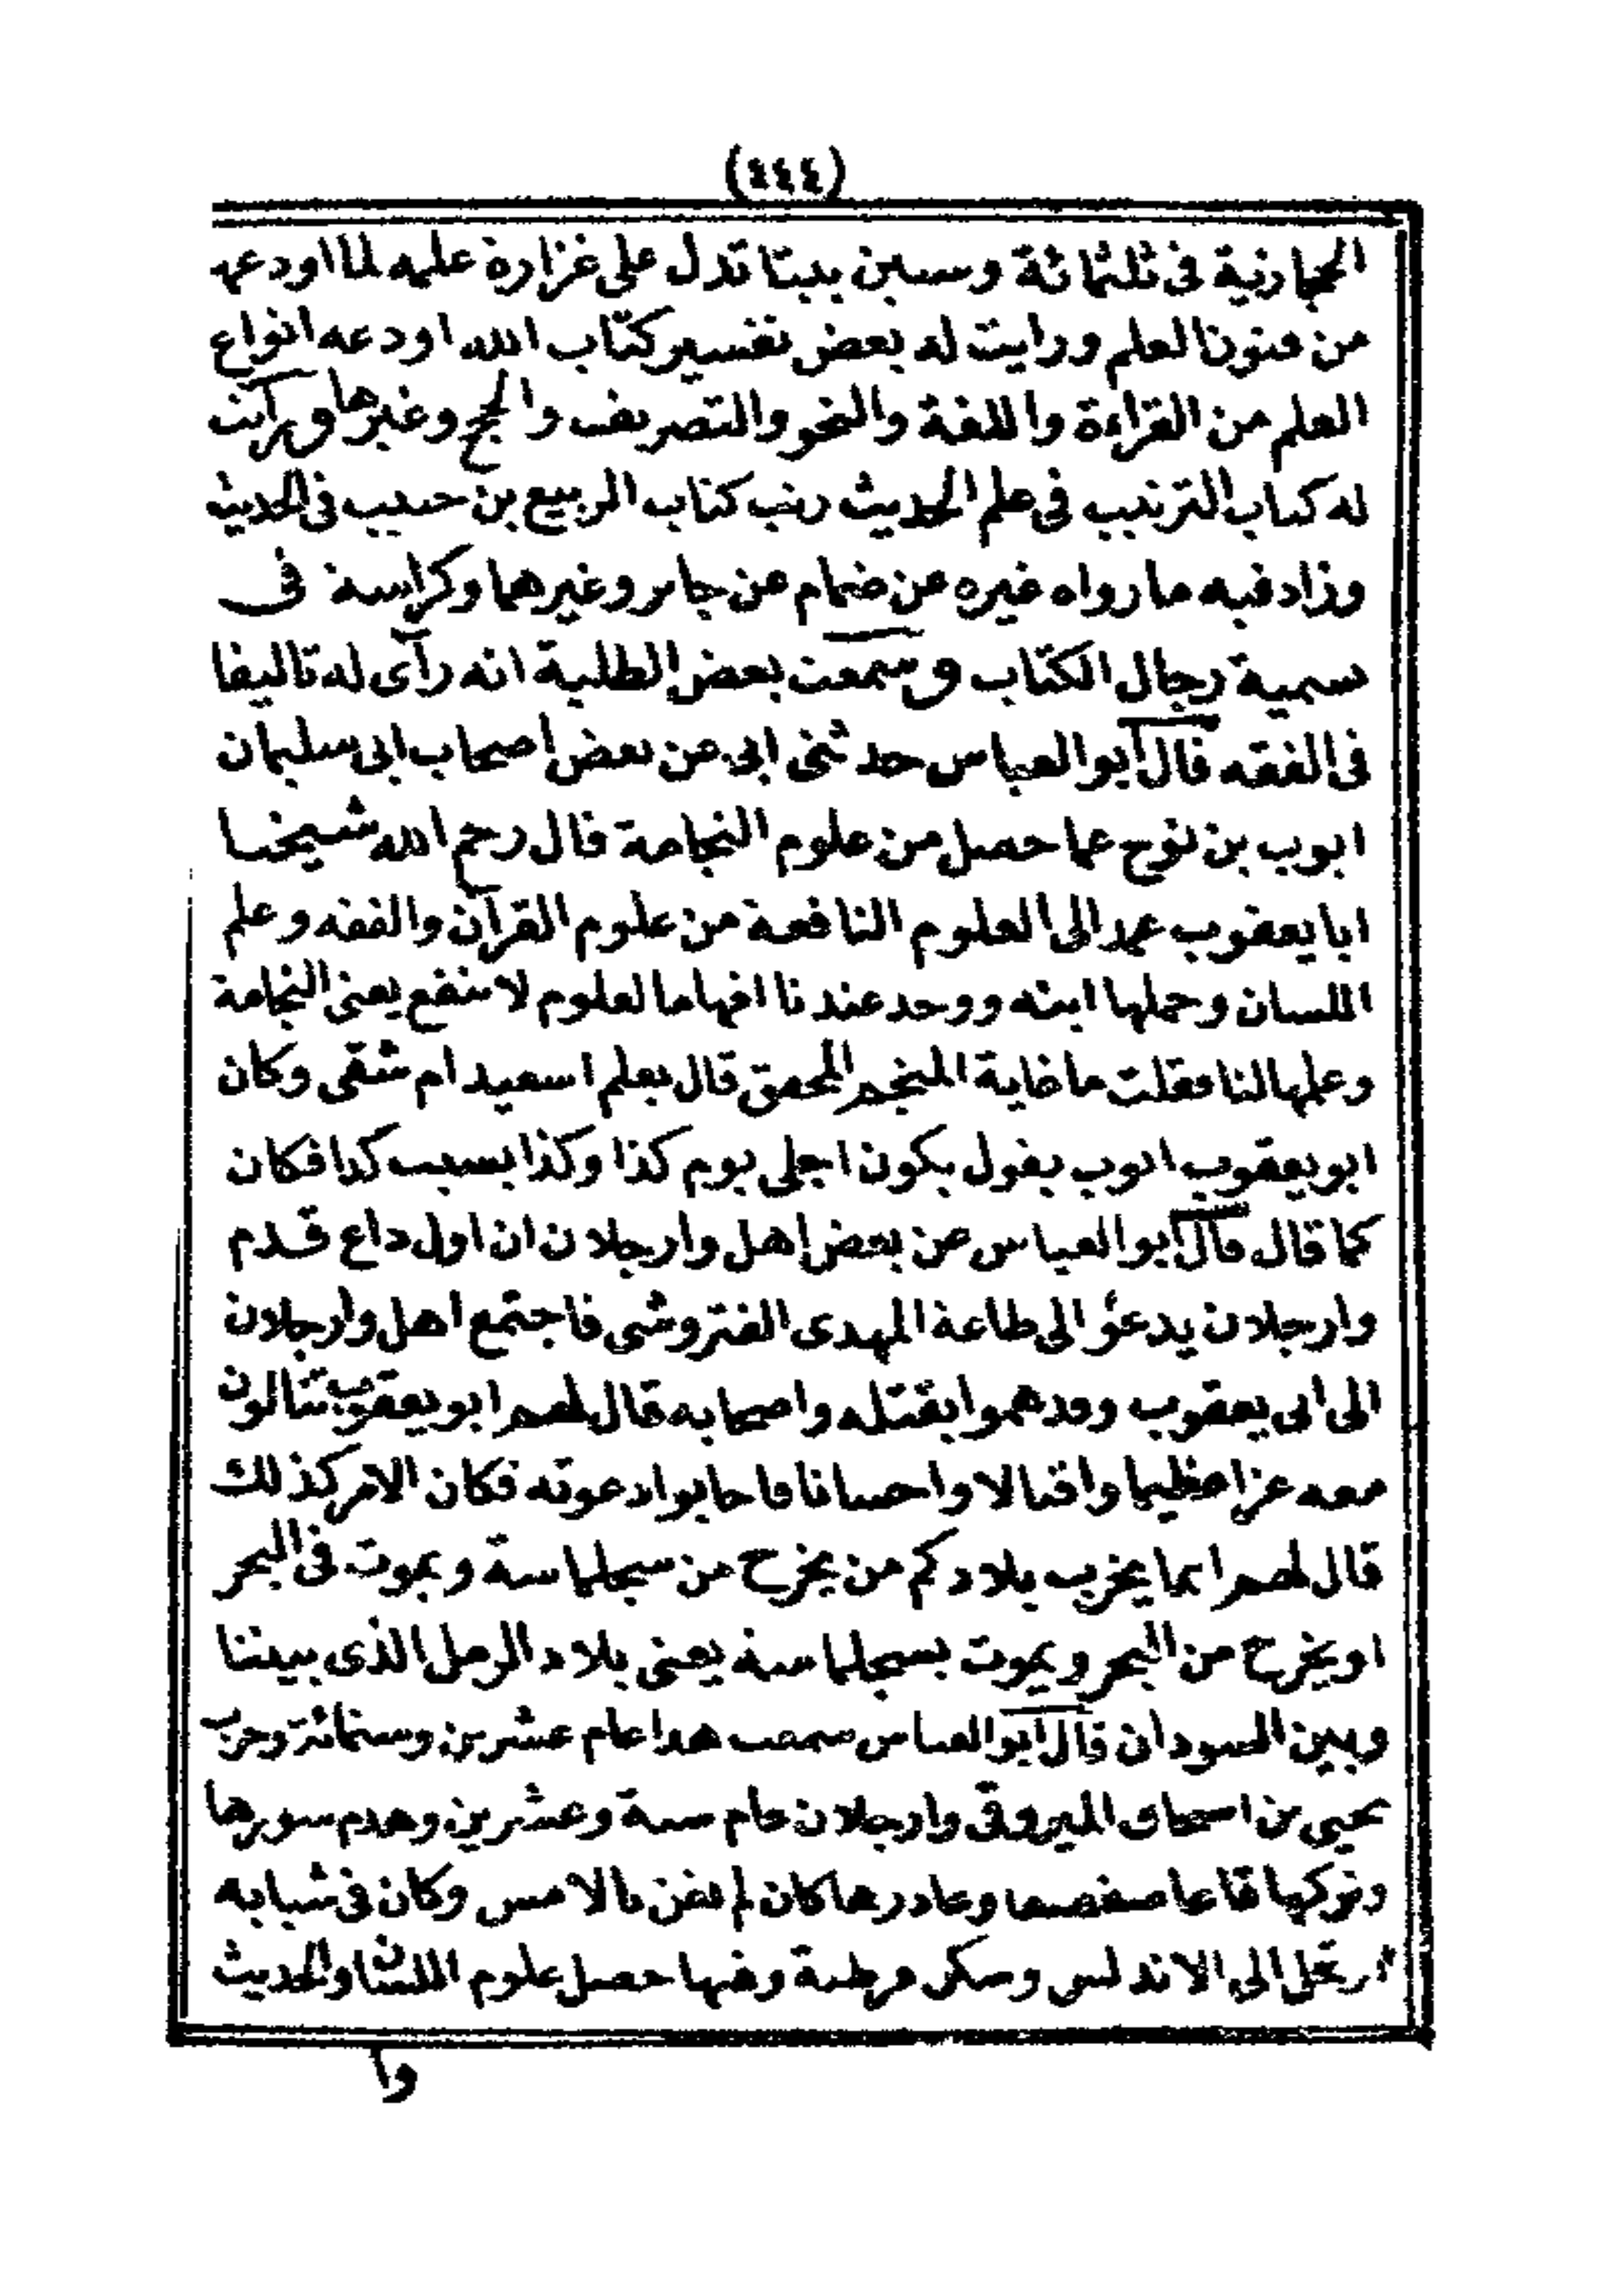 (٤٤٤)
الحجازية فى ثلثمائة وستين بيتا تدل على غزارة علمه لما اودعه
من فنون العلم ورايت له بعض تفسير كتاب الله اودعه انواع
العلم من القراءة واللغة والنحو والتصريف والحج وغيرها ورأيت
له كتاب الترتيب فى علم الحديث رتب كتاب الربيع بن حبيب فى الحديث
وزاد فيه ما رواه غيره عن ضمام عن جابر وغيرهما وكراسة فى
تسمية رجال الكتاب وسمعت بعض الطلبة انه رآى له تاليفا
فى الفقه قال ابو العباس حدثنى ابى عن بعض اصحاب ابى سليمان
ايوب بن نوح عما حصل من علوم النجامة قال رحم الله شيخنا
ابا يعقوب عمد الى العلوم النافعة من علوم القرآن والفقه وعلم
اللسان وحملها ابنه ووجد عندنا افهاما لعلوم لا تنفع يعنى النجامة
وعلمها لنا فقلت ما غاية المنجم المحقق قال يعلم اسعيد ام شقى وكان
ابو يعقوب ايوب يقول يكون اجلى يوم كذا وكذا بسبب كذا فكان
كما قال قال ابو العباس عن بعض اهل وارجلان ان اول داع قدم
وارجلان يدعؤ الى طاعة المهدى الفتروشى فاجتمع اهل وارجلان
الى ابى يعقوب وقد هموا بقتله واصحابه قال لهم ابو يعقوب تنالون
معه عزا عظيما واقبالا واحسانا فاجابوا دعوته فكان الامر كذلك
قال لهم انما يخرب بلادكم من يخرج من سجلماسة ويموت فى البحر
او يخرج من البحر ويموت بسجلماسة يعنى بلاد الرمل الذى بيننا
وبين السودان قال ابو العباس سمعت هذا عام عشرين وستمائة وخرب
يحيى بن اسحاق الميروقى وارجلان عام ستة وعشرين وهدم سورها
وتركها قاعا صفصفا وغادرها كان لم تغن بالامس وكان فى شبابه
ارتحل الى الاندلس وسكن قرطبة وفيها حصل علوم اللسان والحديث
وا